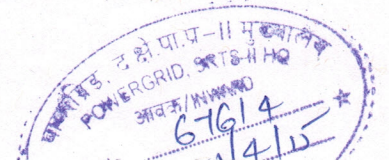 पावरग्रिड, द.क्षे.पा.प्र-II मुख्यालय
POWERGRID, SRTS-II HQ
आवक/INWARD
67614
/4/15